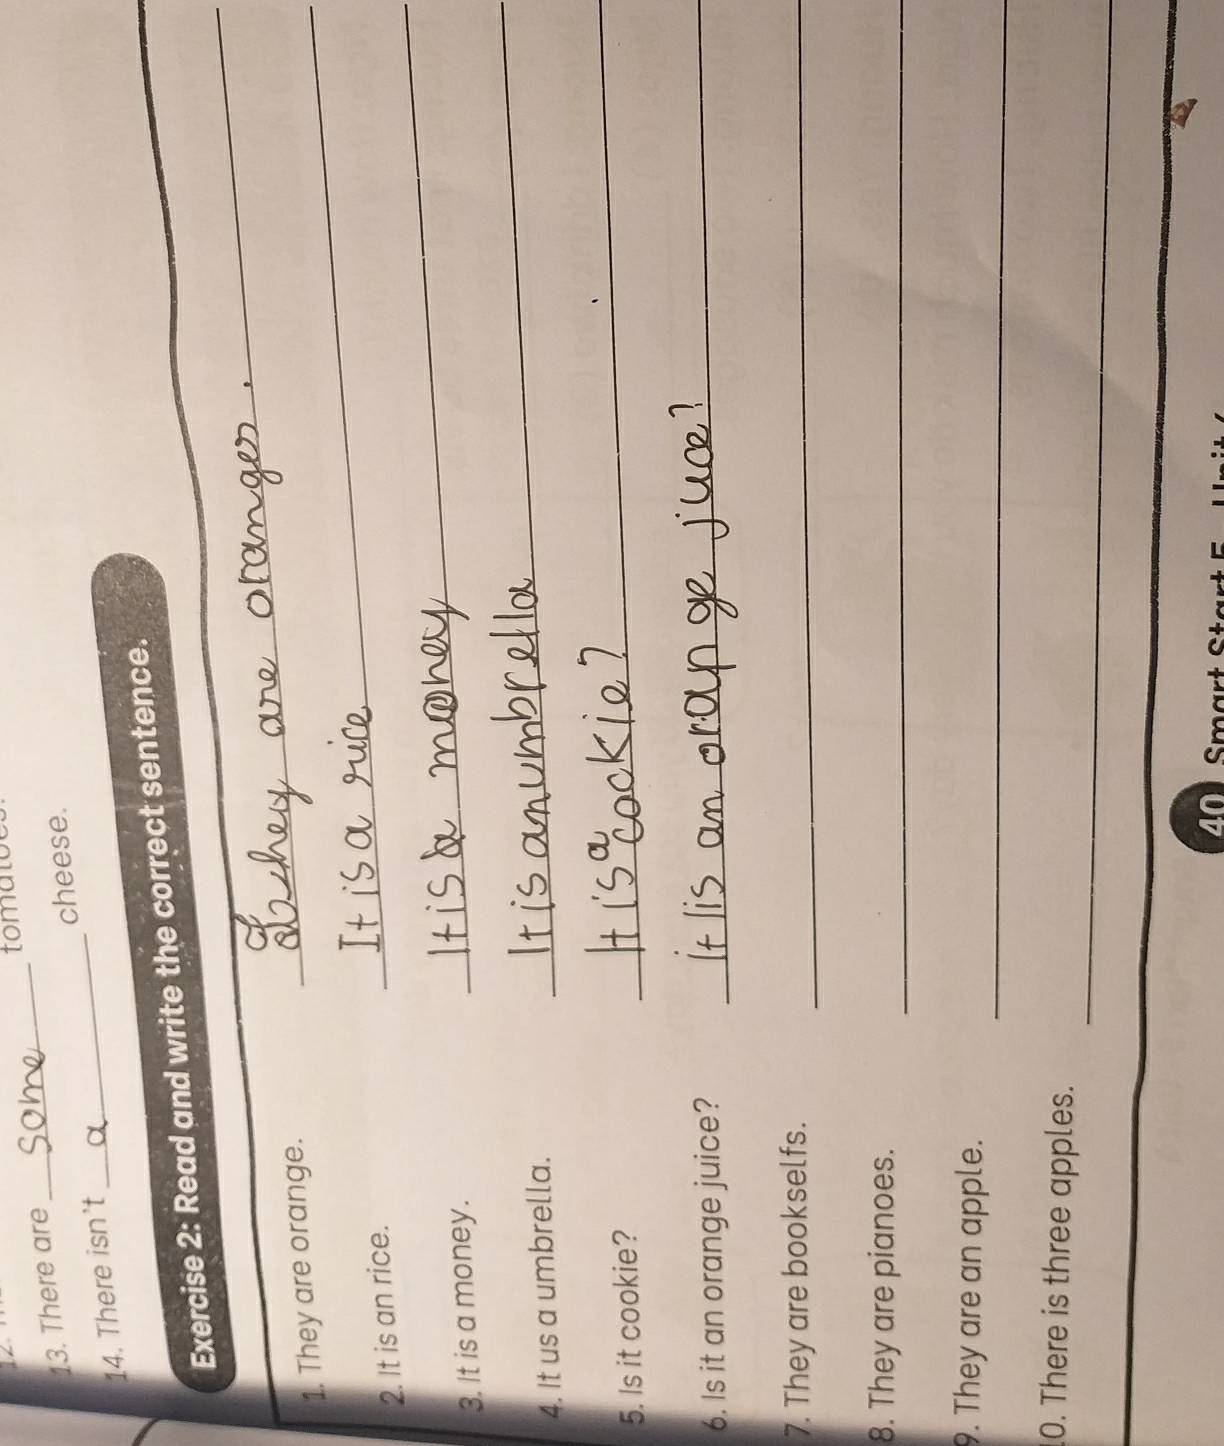 13. There are some tomatoes.
14. There isn't a cheese.
Exercise 2: Read and write the correct sentence.
1. They are orange. They are oranges.
2. It is an rice. It is a rice
3. It is a money. It is a money
4. It us a umbrella. It is an umbrella
5. Is it cookie? It is a cookie?
6. Is it an orange juice? it is an orange juce?
7. They are bookselfs.
8. They are pianoes.
9. They are an apple.
10. There is three apples.
40 Smart Start 5